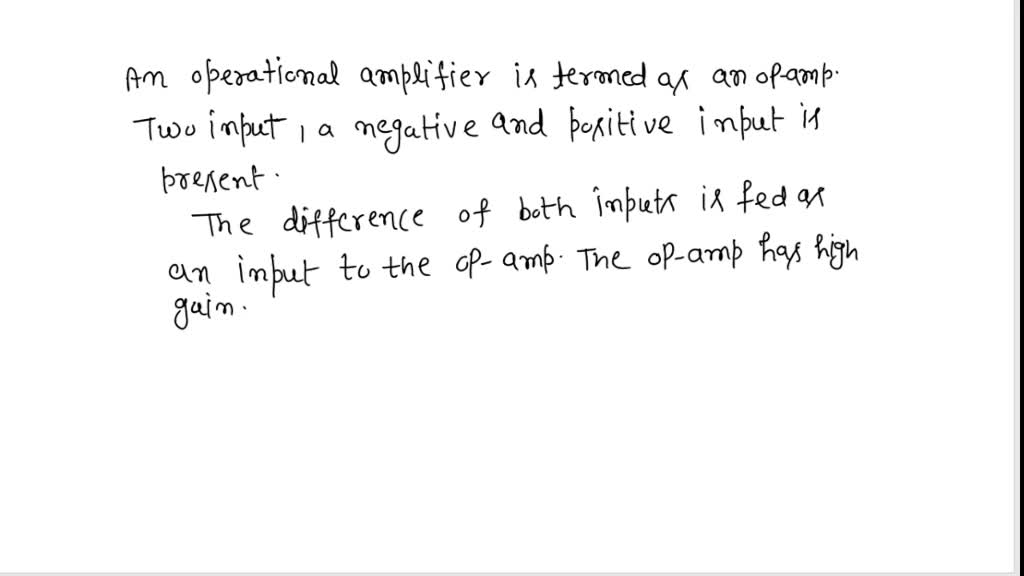 An operational amplifier is termed as an op-amp.
Two input, a negative and positive input is
present.
The difference of both inputs is fed as
an input to the op-amp. The op-amp has high
gain.